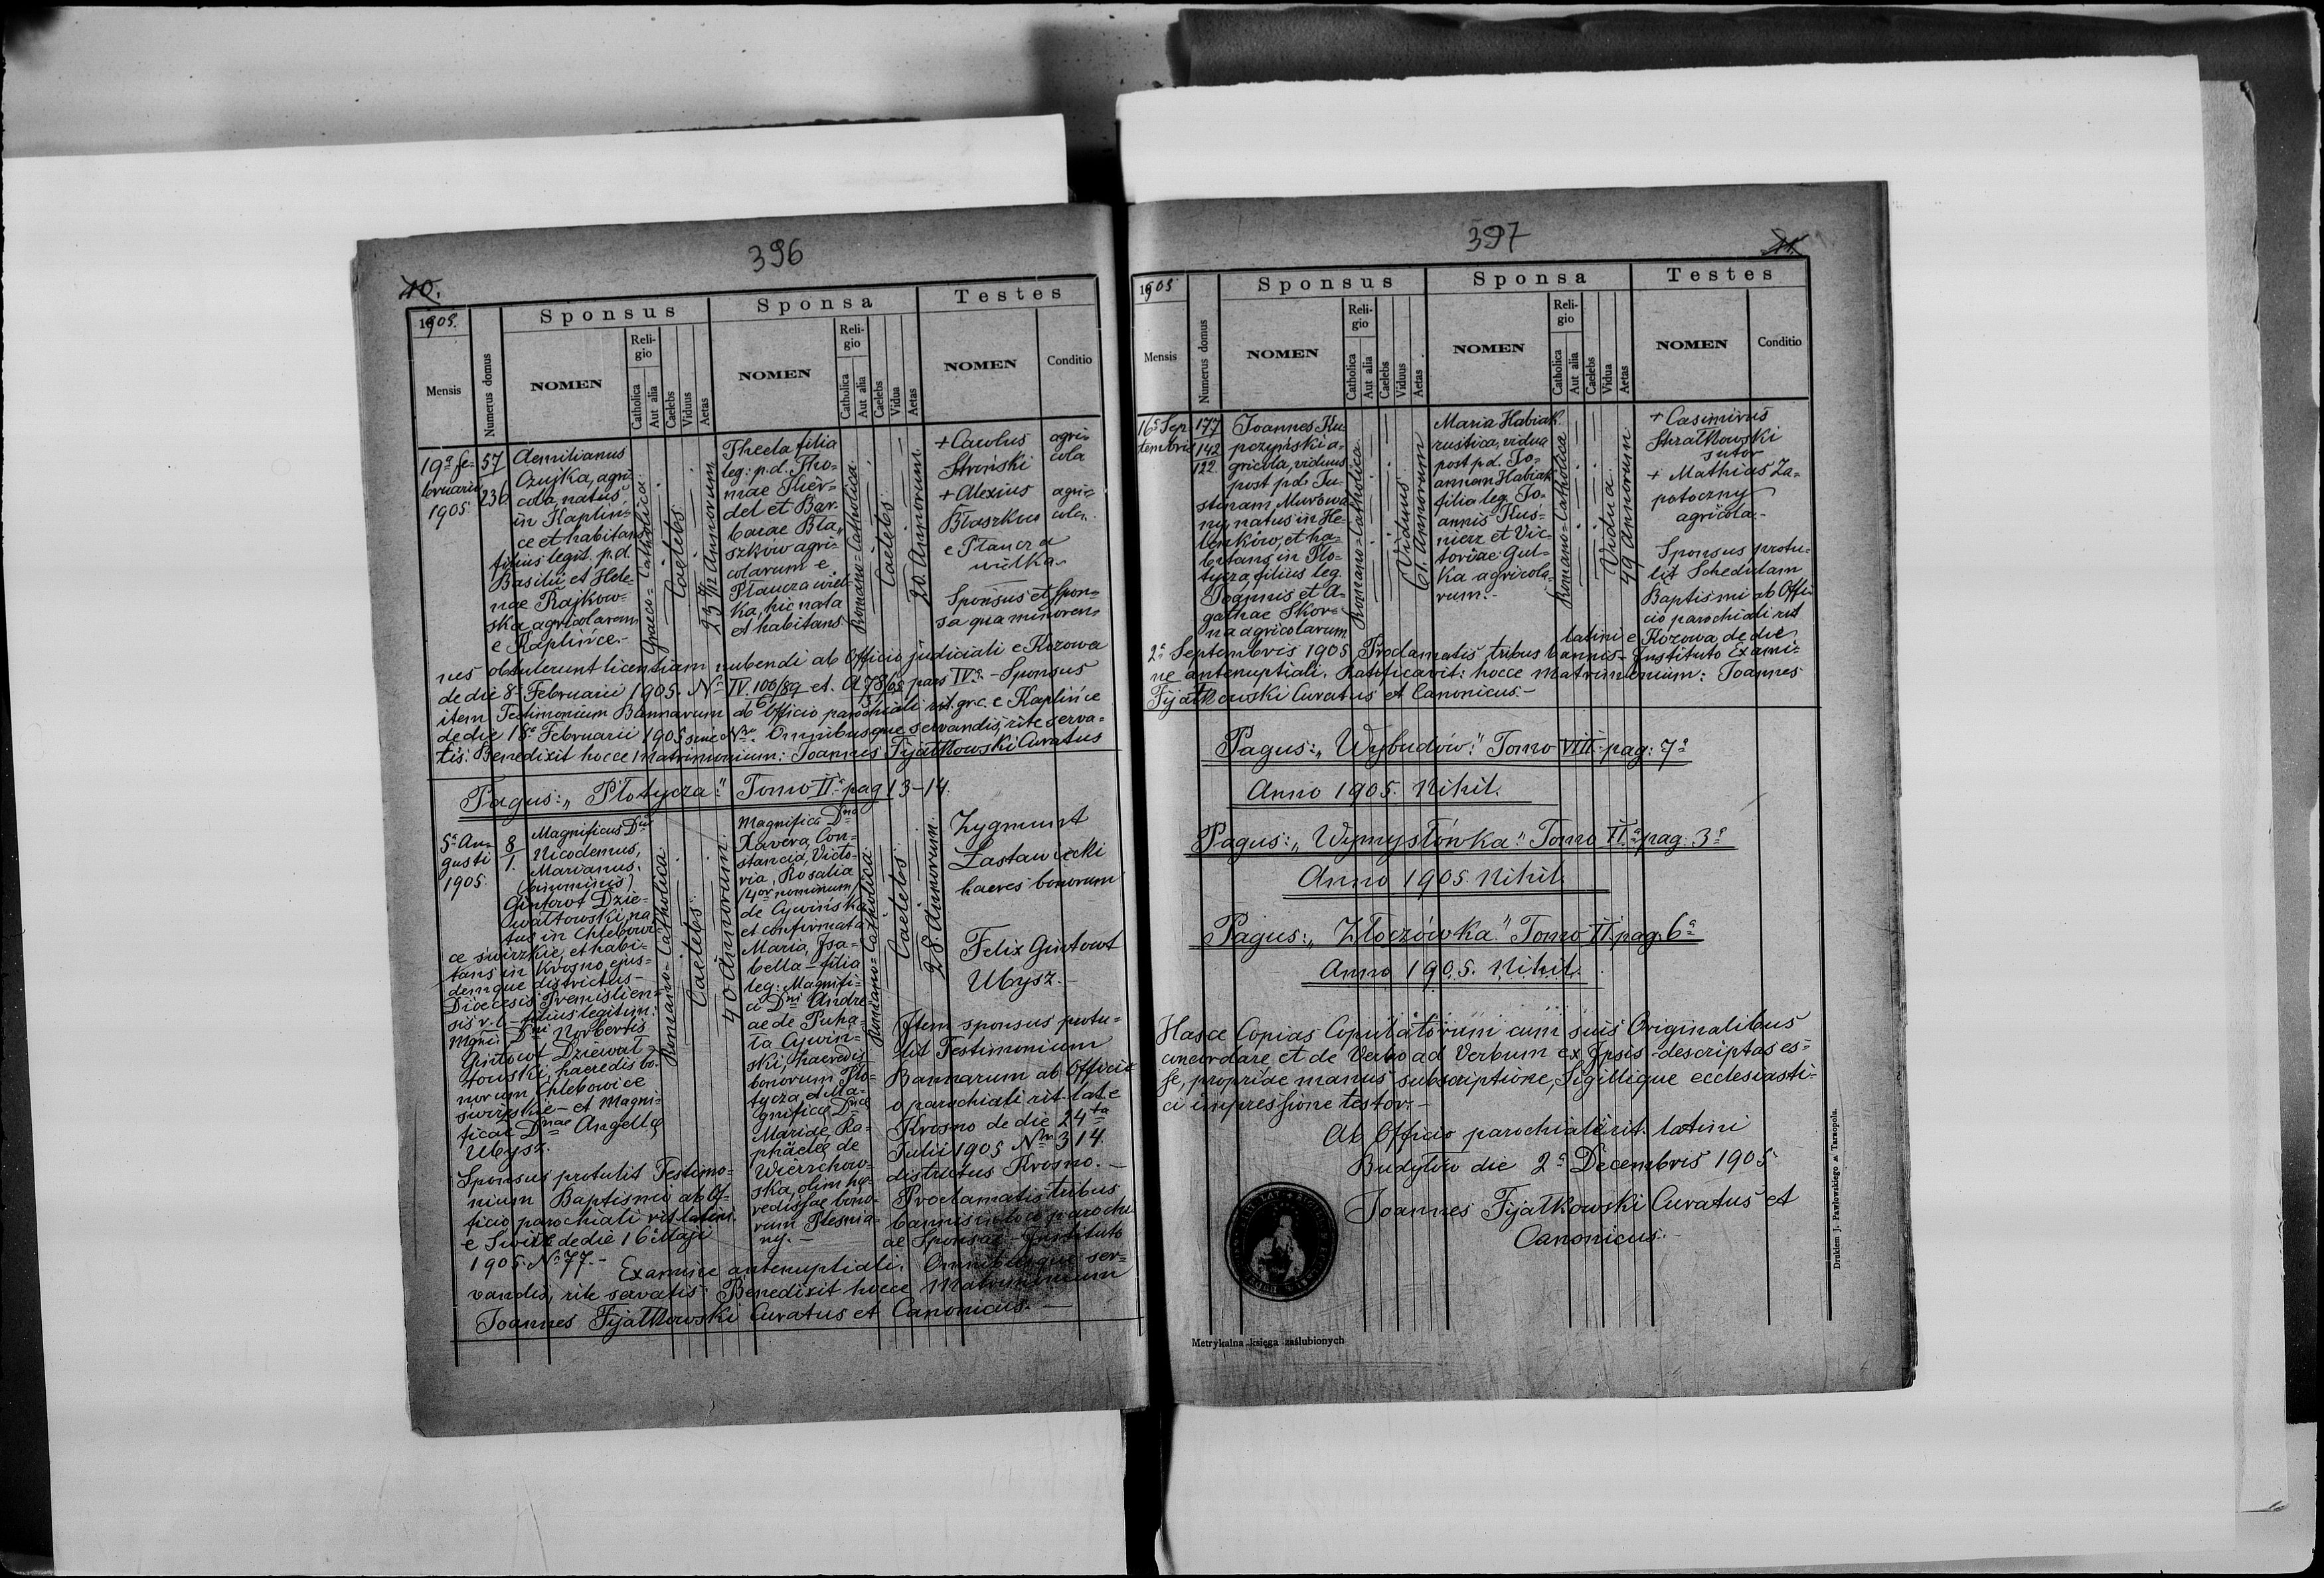 396
10.
1905.
Mensis
Numerus domus
Sponsus
NOMEN
Reli-
gio
Catholica
Aut alia
Caelebs
Viduus
Aetas
Sponsa
NOMEN
Reli-
gio
Catholica
Aut alia
Caelebs
Vidua
Aetas
Testes
NOMEN
Conditio
19a Fe-
bruarii
1905
57
236
Aemilianus
Czujka, agri-
cola, natus
in Kaplin-
ce et habitans
filius legit. p.d.
Basilii et Hele-
nae Rajkow-
ska agricolarum
e Kaplińce.-
Graeco-Catholica
Caelebs
23 Annorum
Thecla filia
leg: p.d. Tho-
mae Thér-
del et Bar-
barae Bła-
szków agri-
colarum e
Płaucza wiel-
ka, hic nata
et habitans
Romano-Catholica
Caelebs
20 Annorum
+ Carolus
Stroński
agri-
cola
+ Alexius
Błaszków
agri-
cola
e Płaucza
wielka-
Sponsus et spon-
sa qua minoren-
nes obtulerunt licentiam nubendi ab Officio judiciali e Kozowa
de die 8a Februarii 1905. No IV. 100/89 et. A 78/65 pars IVa. - Sponsus
item Testimonium Bannarum ab Officio parochiali rit. gr.c. e Kaplińce
de die 18a Februarii 1905 sine Nro. Omnibusque servandis, rite serva-
tis. Benedixit hocce Matrimonium: Joannes Fijałkowski Curatus
Pagus: „Płotycza." Tomo II. pag 13-14.
5a Au-
gusti
1905.
8
1.
Magnificus Dnus
Nicodemus,
Marianus,
(binominis)
Gintowt Dzie-
wałtowski, na-
tus in Chlebowi-
ce świrzkie, et habi-
tans in Krosno ejus-
demque districtus-
Dioecesis Premislien-
sis r.l.- filius legitim:
Magni Dni Norbertis
Gintowt Dziewał-
towski, haeredis bo-
norum Chlebowice
świrzskie - et Magni-
ficae Dnae Angellę
Ubysz.
Romano-Catholica
Caelebs
40 Annorum
Magnifica Dna
Xavera, Con-
stancia, Victo-
ria, Rosalia
(4or nominum)
de Cywińska
et confirmata
Maria, Isa-
bella - filia
leg: Magnifi-
ci Dni Andre-
ae de Puha-
ła Cywin-
ski, haeredis
bonorum Pło-
tycza, et Ma-
gnificę Dnae
Mariae, Ra-
phaelę de
Wierzchow-
ska, olim hę-
redissae bono-
rum Plesnia-
ny.-
Romano-Catholica
Caelebs
28 Annorum
Zygmunt
Zastawiecki
haeres bonorum
Felix Gintowt
Ubysz.-
Item sponsus protu-
lit Testimonium
Bannarum ab Offici-
o parochiali rit. lat. e
Krosno de die 24ta
Julii 1905 Nro 314.
districtus Krosno.-
Proclamatis tribus
bannis in loco parochi-
ae Sponsae - Instituto
Sponsus protulit Testimo-
nium Baptismi ab Of-
ficio parochiali rit. latini
e Świrz de die 16 Maji
1905. No 77.-
Examine antenuptiali. Omnibusque ser-
vandis, rite servatis: Benedixit hocce Matrimonium
Joannes Fijałkowski Curatus et Canonicus.-
397
11.
1905
Mensis
Numerus domus
Sponsus
NOMEN
Reli-
gio
Catholica
Aut alia
Caelebs
Viduus
Aetas
Sponsa
NOMEN
Reli-
gio
Catholica
Aut alia
Caelebs
Vidua
Aetas
Testes
NOMEN
Conditio
16a Sep-
tembris
177
142
122
Joannes Ku-
pczyński a-
gricola, viduus
post p.d. Ju-
stinam Murowa-
ny, natus in He-
lenków, et ha-
bitans in Pło-
tycza, filius leg.
Joannis et A-
gathae Skor-
na agricolarum.
Romano-Catholica
Viduus
61. Annorum
Maria Habiak
rustica, vidua
post p.d. Jo-
annem Habiak
filia leg. Jo-
annis Kuś-
nierz et Vic-
toriae Gul-
ka agricola-
rum.-
Romano-Catholica
Vidua
49 Annorum
+ Casimirus
Strałkowski
sutor
+ Mathias Za-
potoczny
agricola.-
Sponsus protu-
lit Schedulam
Baptismi ab Offi-
cio parochiali rit
latini e Kozowa, de die
2a Septembris 1905 Proclamatis tribus bannis - Instituto Exami-
ne antenuptiali. Ratificavit: hocce matrimonium: Joannes
Fijałkowski Curatus et Canonicus.-
Pagus: „Wybudów." Tomo VIII. pag: 7a
Anno 1905. Nihil.
Pagus: „Wymysłówka." Tomo II.a pag. 3a
Anno 1905. Nihil.
Pagus: „Złoczówka." Tomo II. pag. 6a
Anno 1905. Nihil.
Hasce Copias Copulatorum cum suis Originalibus
concordare, et de Verbo ad Verbum ex Ipsis descriptas es-
se, propriae manus subscriptione, Sigillique ecclesiasti-
ci impressione testor.-
Ab Officio parochiali rit. latini
Budyłów die 2a Decembris 1905
Joannes Fijałkowski Curatus et
Canonicus.-
Metrykalna księga zaślubionych
Drukiem J. Pawłowskiego w Tarnopolu.